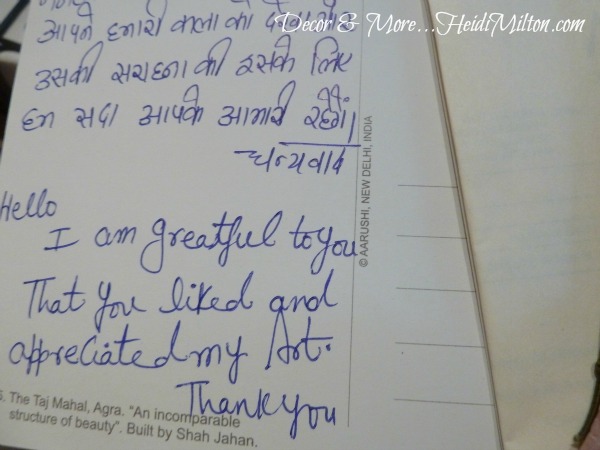 Decor & More...HeidiMilton.com
आपने हमारी कला को
उसकी सराहना की इसके लिए
हम सदा आपके आभारी रहेंगें।
धन्यवाद
© AARUSHI, NEW DELHI, INDIA
Hello
I am greatful to you
That you liked and
appreciated my Art.
Thank you
5. The Taj Mahal, Agra. "An incomparable
structure of beauty". Built by Shah Jahan.